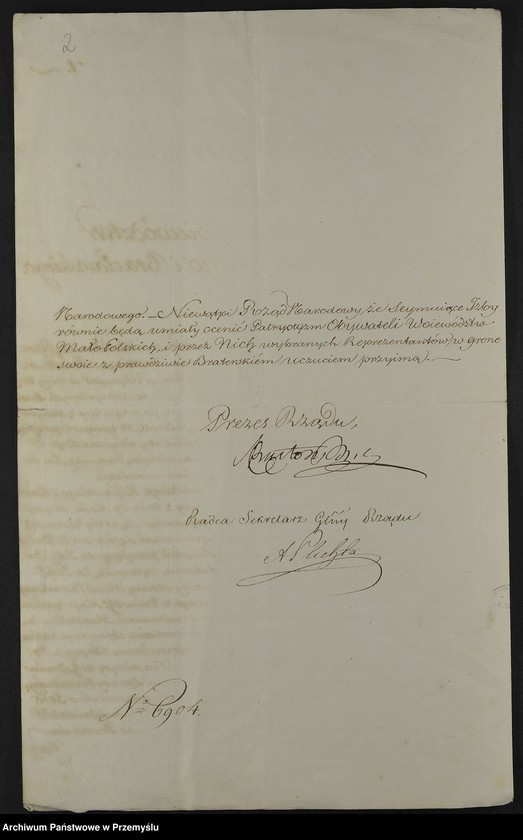 2
Narodowego. — Niewątpi Rząd Narodowy, że Seymuiące Izby
równie będą umiały ocenić Patryotyzm Obywateli Woiewództw
Mało Polskich, i przez Nich wybranych Reprezentantów w grono
swoie z prawdziwie Braterskiém uczuciem przyimą. —
Prezes Rządu,
Radca Sekretarz Głny Rządu
A Plichta
No 6904.
Archiwum Państwowe w Przemyślu